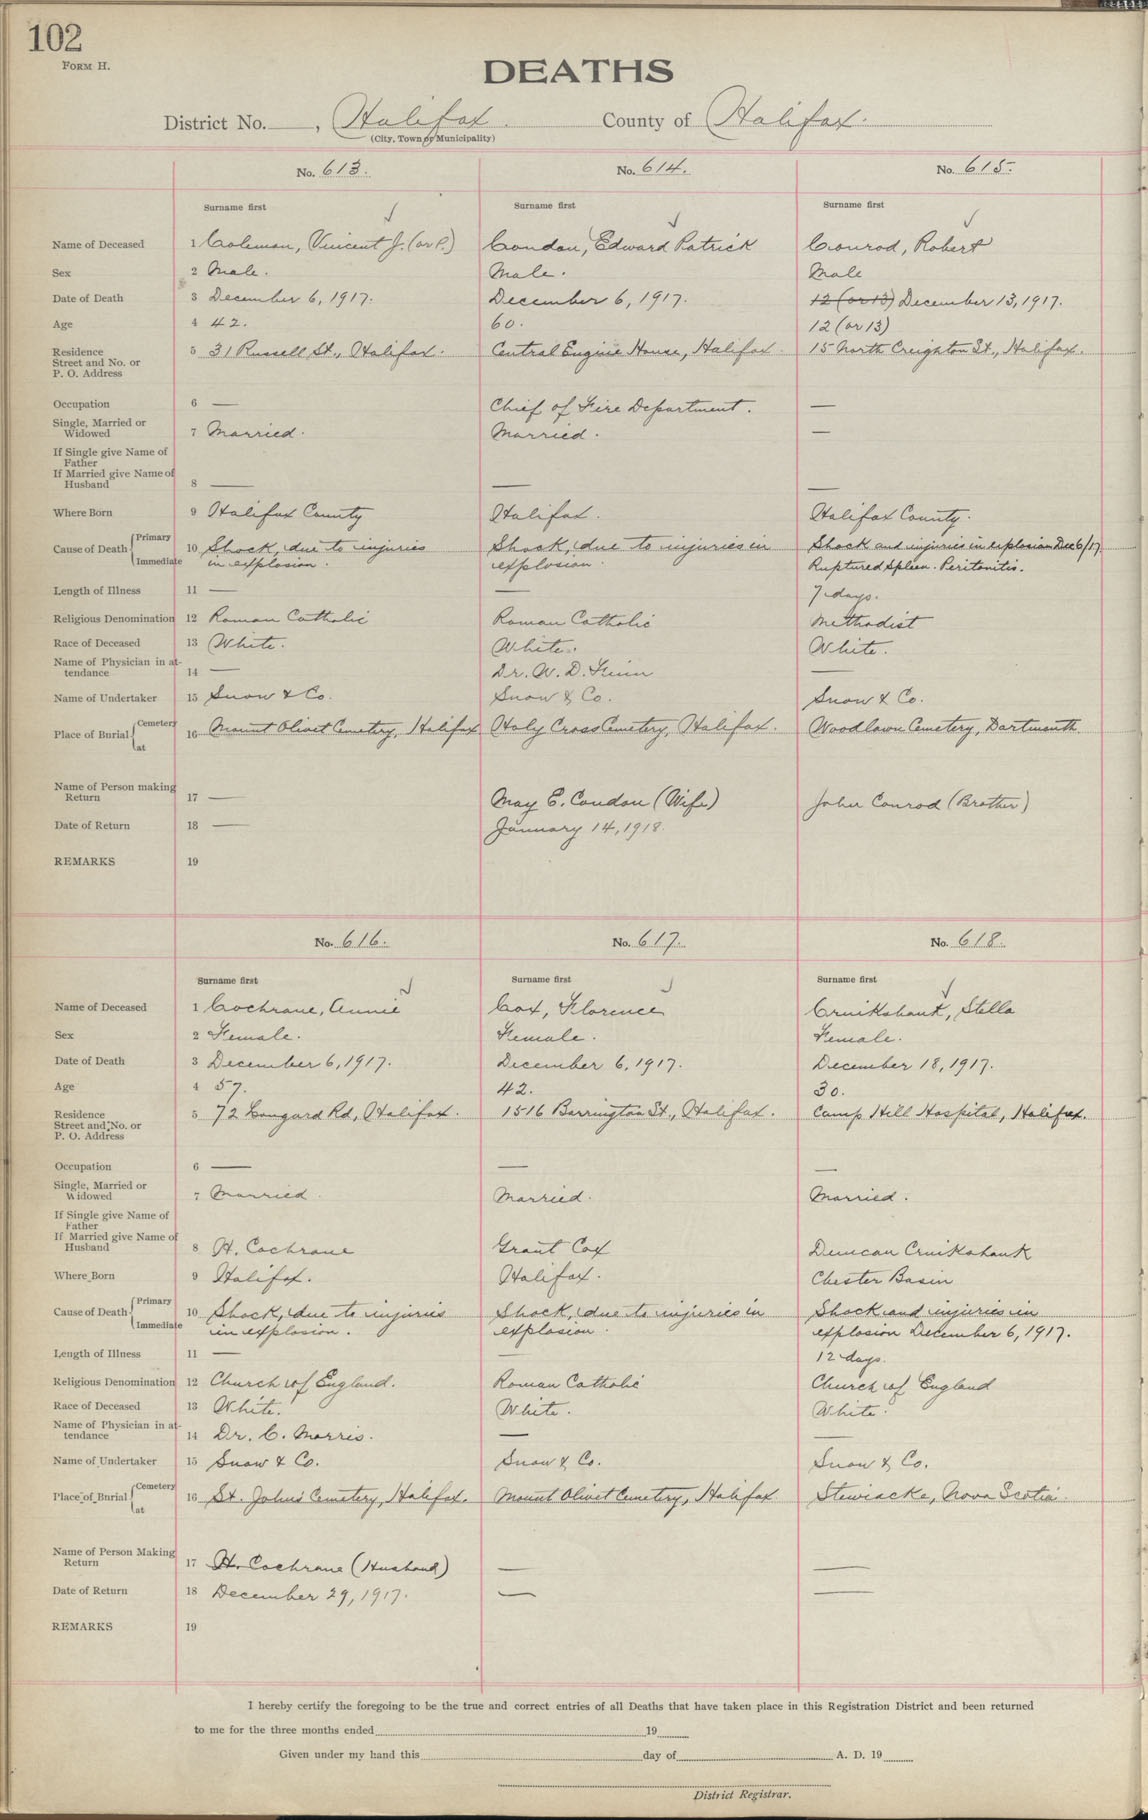 102
FORM H.
DEATHS
District No. , Halifax. County of Halifax.
(City, Town or Municipality)
No. 613.
Surname first
Name of Deceased 1 Coleman, Vincent J. (or P.)
Sex 2 Male.
Date of Death 3 December 6, 1917.
Age 4 42.
Residence Street and No. or P. O. Address 5 31 Russell St., Halifax.
Occupation 6 —
Single, Married or Widowed 7 Married.
If Single give Name of Father
If Married give Name of Husband 8 —
Where Born 9 Halifax County
Cause of Death { Primary Immediate 10 Shock, due to injuries
in explosion.
Length of Illness 11 —
Religious Denomination 12 Roman Catholic
Race of Deceased 13 White.
Name of Physician in attendance 14 —
Name of Undertaker 15 Snow & Co.
Place of Burial { Cemetery at 16 Mount Olivet Cemetery, Halifax
Name of Person making Return 17 —
Date of Return 18 —
REMARKS 19
No. 614.
Surname first
Condon, Edward Patrick
Male.
December 6, 1917.
60.
Central Engine House, Halifax
Chief of Fire Department.
Married.
—
Halifax.
Shock, due to injuries in
explosion.
—
Roman Catholic
White.
Dr. W. D. Finn
Snow & Co.
Holy Cross Cemetery, Halifax.
May E. Condon (Wife)
January 14, 1918.
No. 615.
Surname first
Conrod, Robert
Male
12 (or 13) December 13, 1917.
12 (or 13)
15 North Creighton St., Halifax.
—
—
—
Halifax County.
Shock and injuries in explosion Dec 6/17
Ruptured Spleen. Peritonitis.
7 days.
Methodist
White.
—
Snow & Co.
Woodlawn Cemetery, Dartmouth
John Conrod (Brother)
No. 616.
Surname first
Name of Deceased 1 Cochrane, Annie
Sex 2 Female.
Date of Death 3 December 6, 1917.
Age 4 57.
Residence Street and No. or P. O. Address 5 72 Longard Rd, Halifax.
Occupation 6 —
Single, Married or Widowed 7 Married.
If Single give Name of Father
If Married give Name of Husband 8 H. Cochrane
Where Born 9 Halifax.
Cause of Death { Primary Immediate 10 Shock, due to injuries
in explosion.
Length of Illness 11 —
Religious Denomination 12 Church of England.
Race of Deceased 13 White.
Name of Physician in attendance 14 Dr. C. Morris.
Name of Undertaker 15 Snow & Co.
Place of Burial { Cemetery at 16 St. John's Cemetery, Halifax.
Name of Person Making Return 17 H. Cochrane (Husband)
Date of Return 18 December 29, 1917.
REMARKS 19
No. 617.
Surname first
Cox, Florence
Female.
December 6, 1917.
42.
1516 Barrington St., Halifax.
—
Married.
Grant Cox
Halifax.
Shock, due to injuries in
explosion.
—
Roman Catholic
White.
—
Snow & Co.
Mount Olivet Cemetery, Halifax
—
—
No. 618.
Surname first
Cruikshank, Stella
Female.
December 18, 1917.
30.
Camp Hill Hospital, Halifax.
—
Married.
Duncan Cruikshank
Chester Basin
Shock and injuries in
explosion December 6, 1917.
12 days.
Church of England
White.
—
Snow & Co.
Stewiacke, Nova Scotia.
—
—
I hereby certify the foregoing to be the true and correct entries of all Deaths that have taken place in this Registration District and been returned
to me for the three months ended 19
Given under my hand this day of A. D. 19
District Registrar.